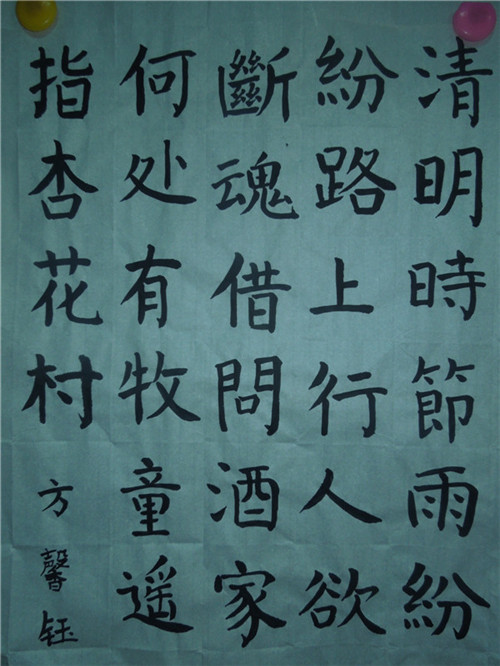 清明時節雨紛
紛路上行人欲
斷魂借問酒家
何处有牧童遥
指杏花村
方馨钰